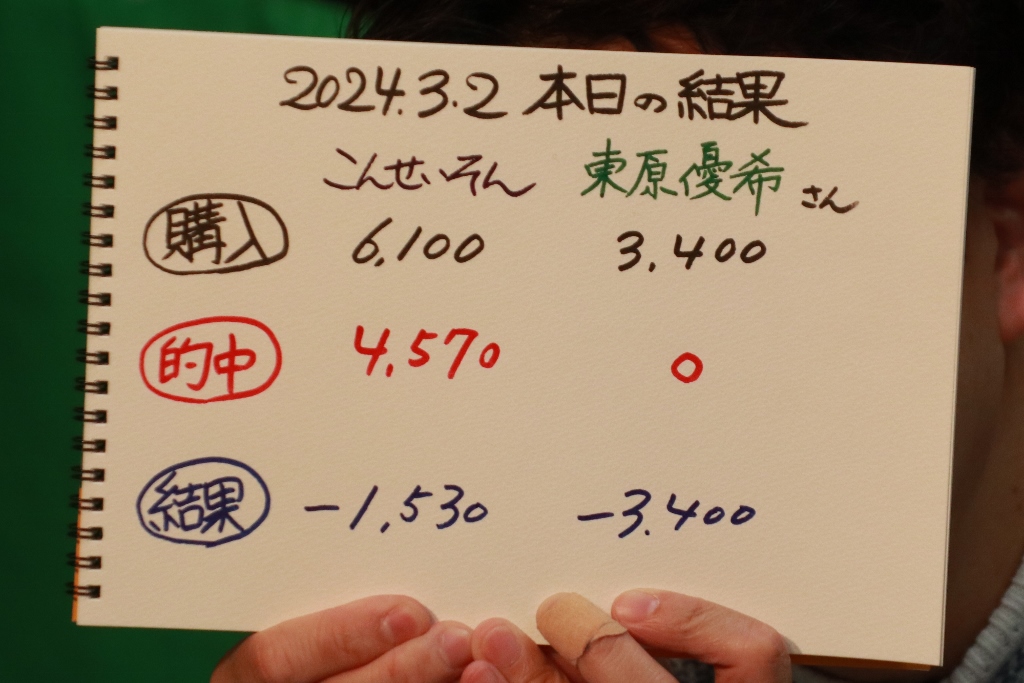 2024.3.2 本日の結果
こんせいそん 東原優希さん
購入 6,100 3,400
的中 4,570 0
結果 -1,530 -3,400